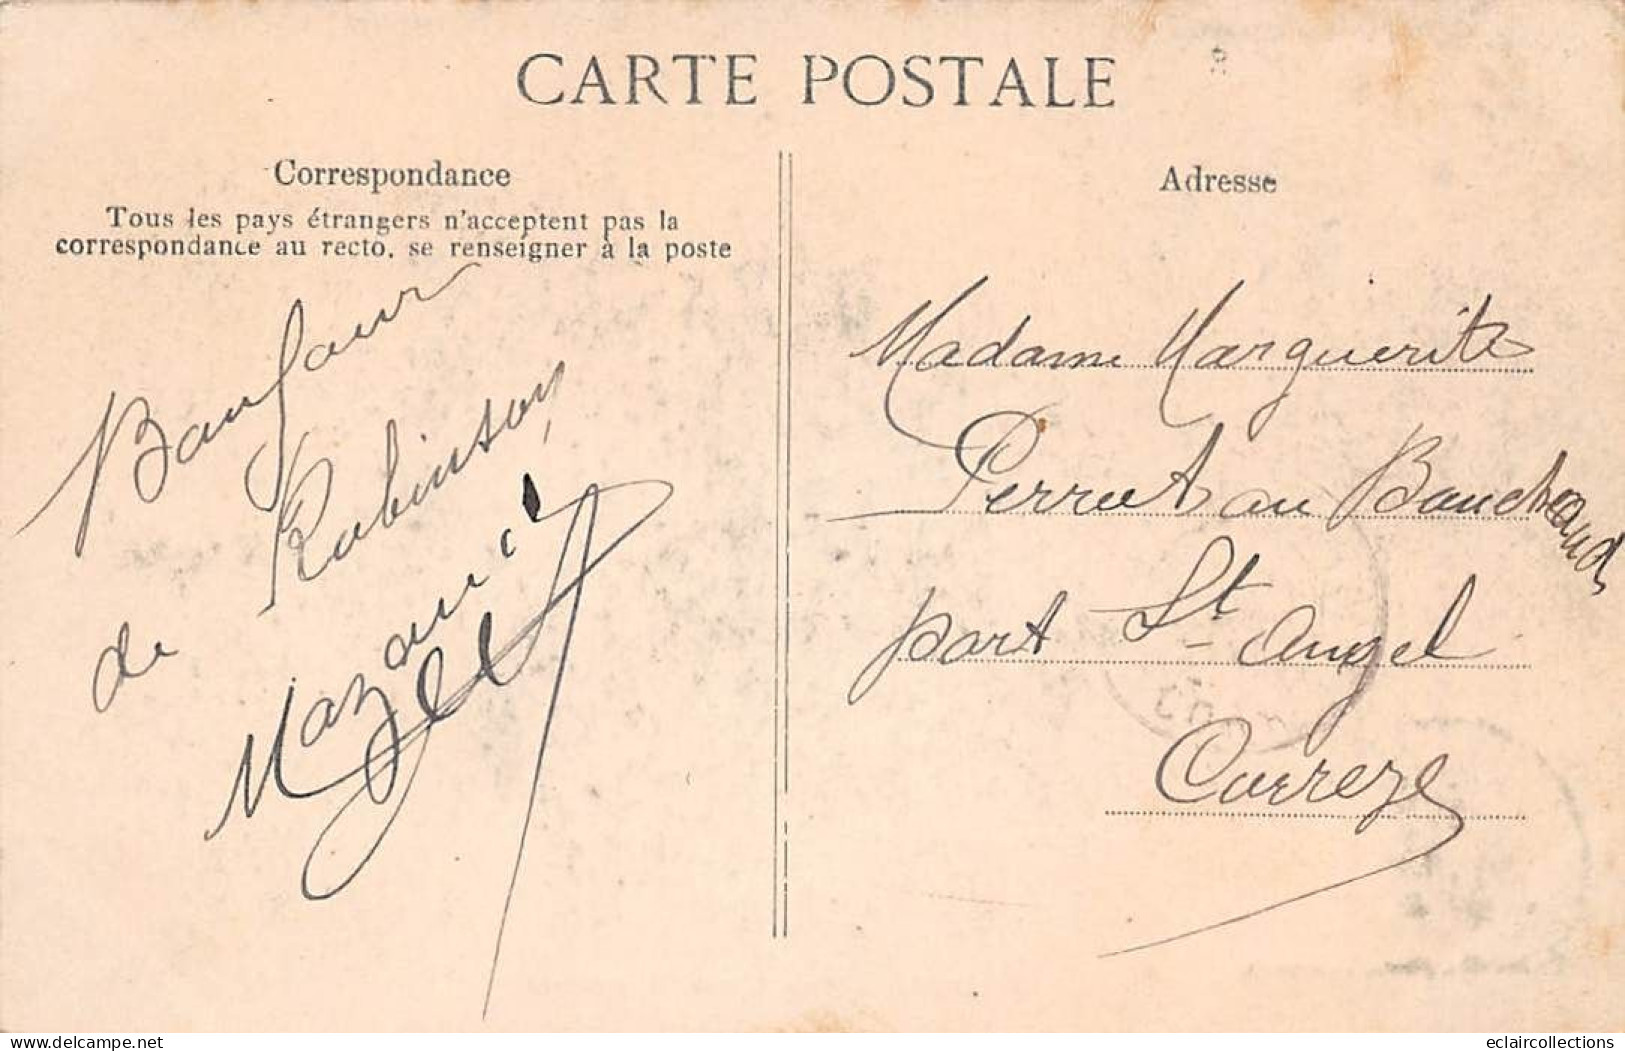 CARTE POSTALE
Correspondance
Tous les pays étrangers n'acceptent pas la
correspondance au recto, se renseigner à la poste
Bonjour
de Robinson
Adresse
Madame Marguerite
Perrut au Boucheaud
part St Angel
Correze
delcampe.net
eclaircollections